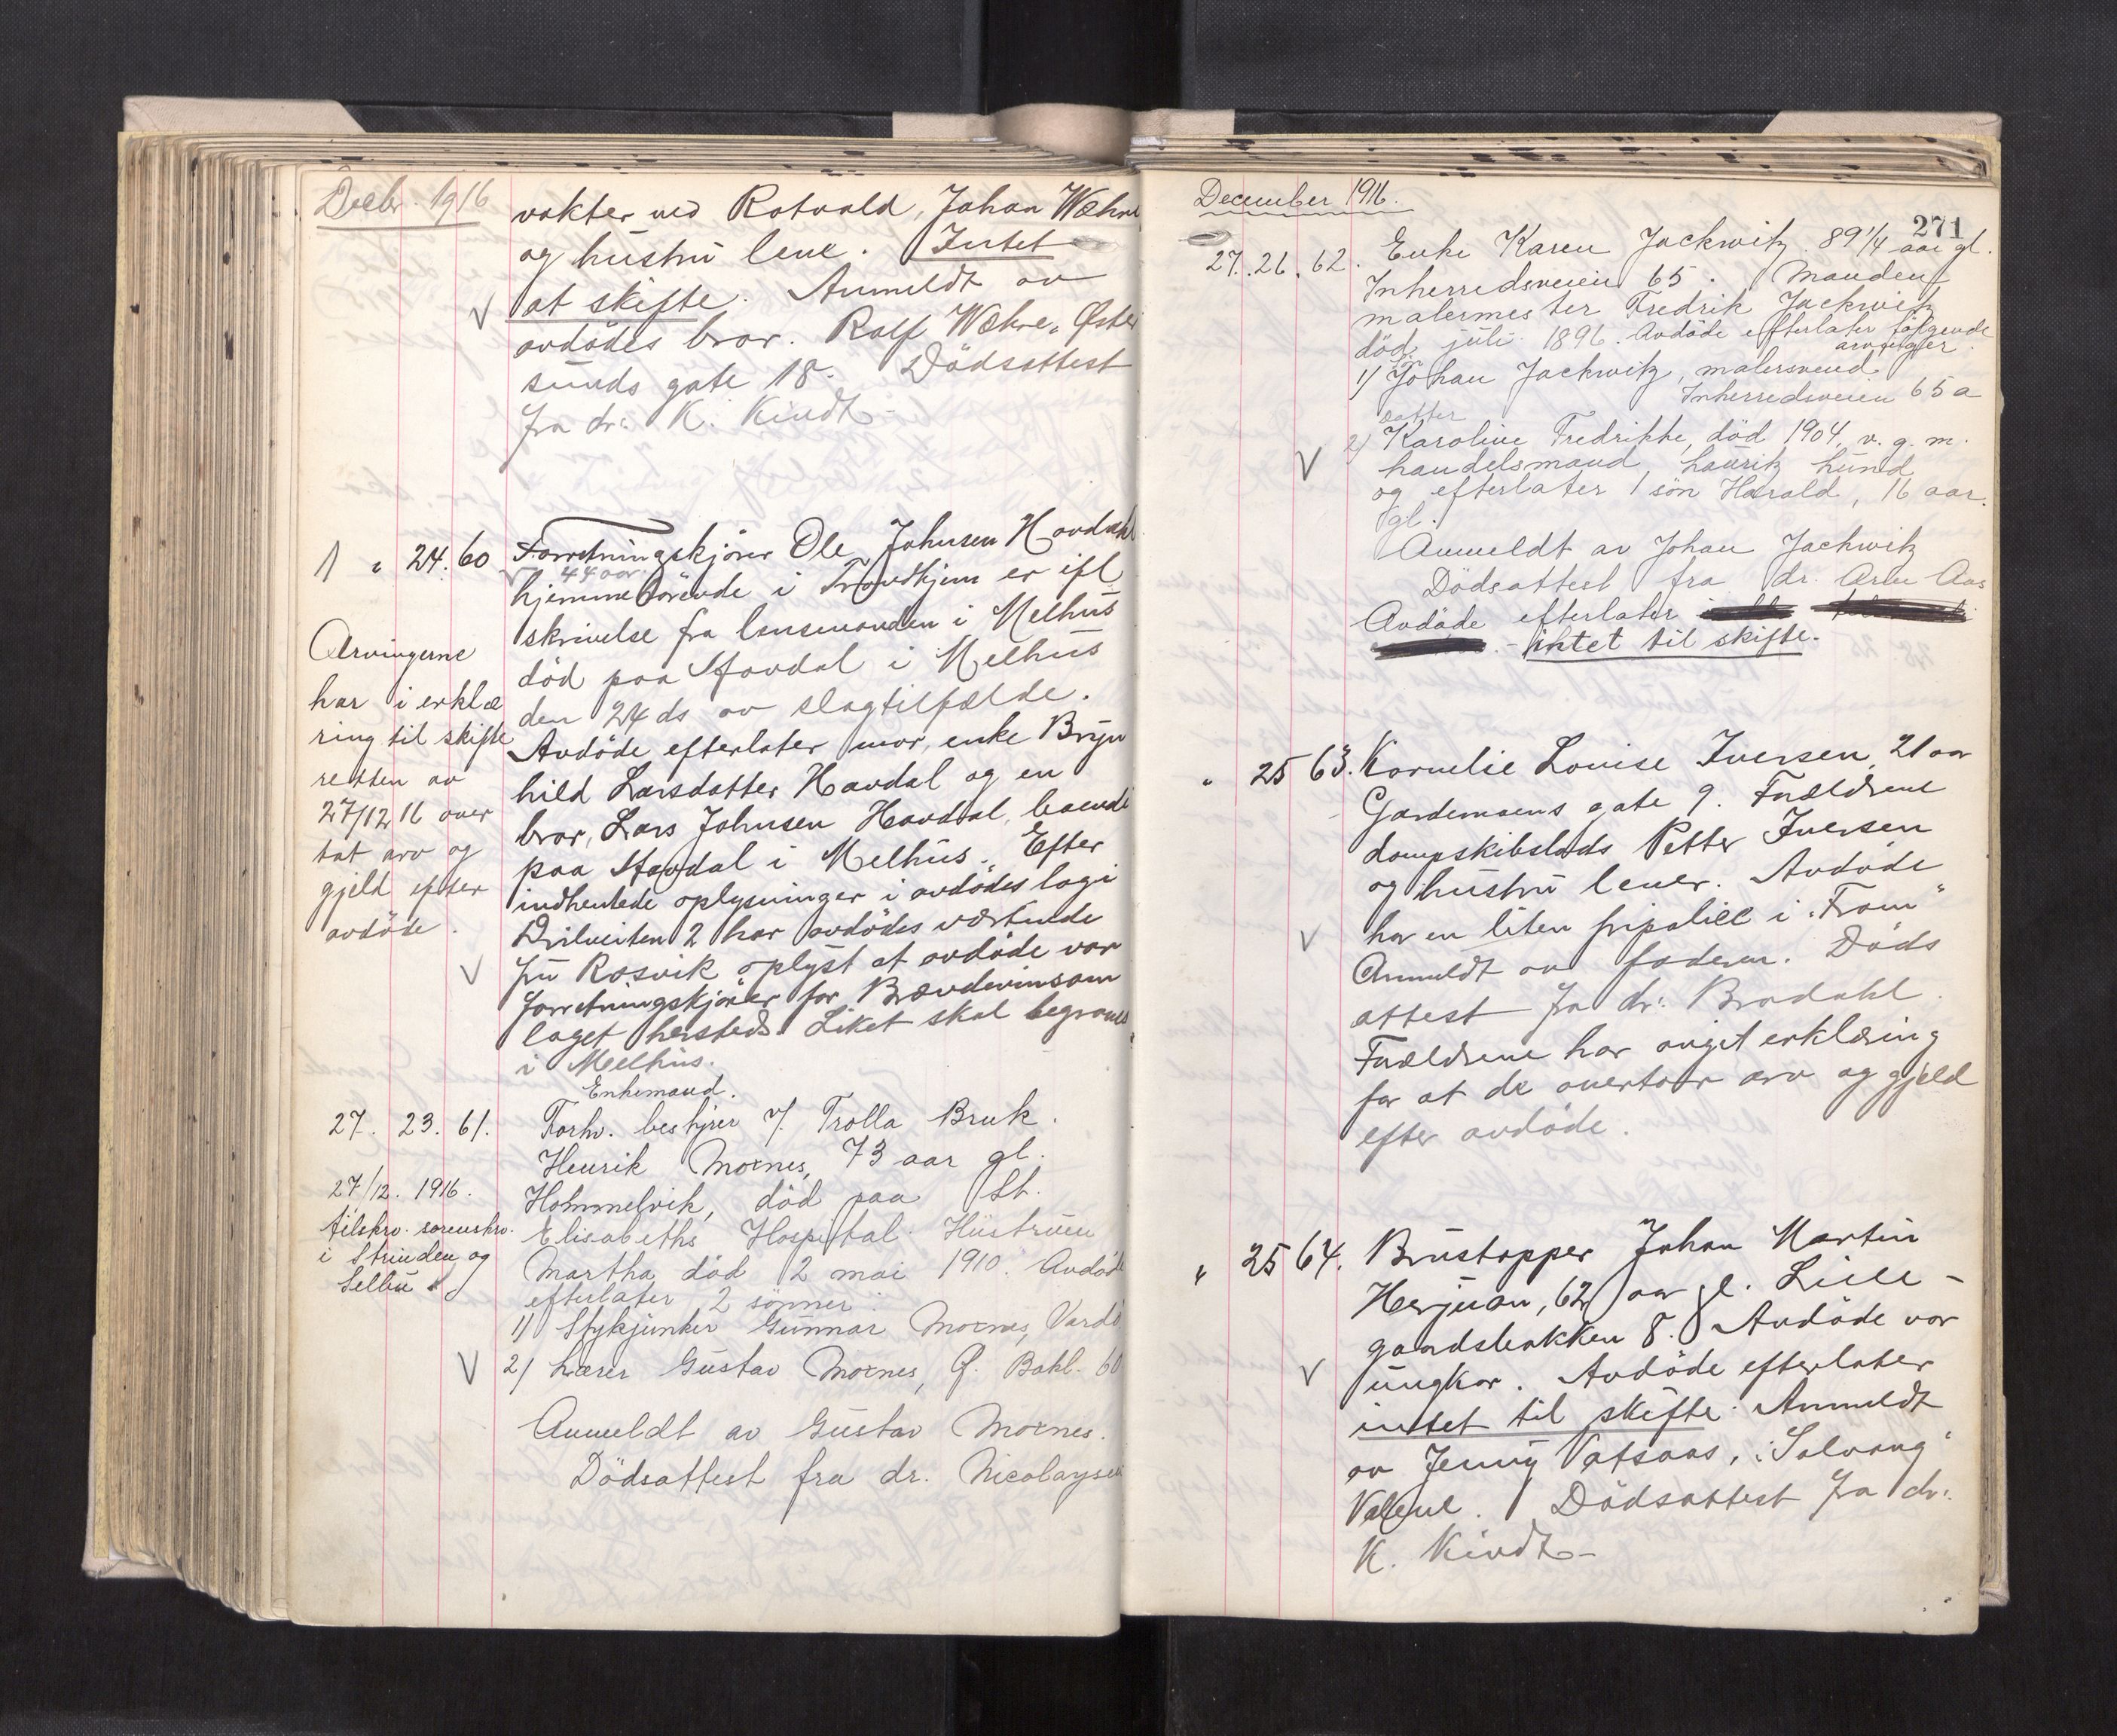 Decbr. 1916
vokter ved Rotvold, Johan Wæhre
og hustru leve. Intet
at skifte. Anmeldt av
avdødes bror. Ralf Wæhre, Øster
sunds gate 18. Dödsattest
fra dr: K. Kindt
1 " 24. 60 Forretningskjörer Ole Johnsen Havdahl
44 aar
hjemmehörende i Trondhjem er ifl
skrivelse fra lensmanden i Melhus
död paa Havdal i Melhus
den 24 ds av slagtilfælde.
Avdöde efterlater mor, enke Bryn
hild Larsdatter Havdal og en
bror, Lars Johnsen Havdal, boende
paa Havdal i Melhus. Efter
indhentede oplysninger i avdödes logi
2 har avdödes vertinde
fru Rosvik oplyst at avdöde var
forretningskjörer for Brændevinsam
laget hersteds. Liket skal begraves
i Melhus.
Arvingerne
har i erklæ
ring til skifte
retten av
27/12 16 over
tat arv og
gjeld efter
avdöde.
Enkemand.
27. 23. 61. Forhv. bestyrer v/ Trolla Bruk.
Henrik Moxnes, 73 aar gl.
Hommelvik, död paa St.
Elisabeths Hospital. Hustruen
Martha död 2 mai 1910. Avdöde
efterlater 2 sönner:
1) Stykjunker Gunnar Moxnes, Vardö
2) Lærer Gustav Moxnes, Bakl. 60
Anmeldt av Gustav Moxnes.
Dödsattest fra dr. Nicolaysen
27/12. 1916.
tilskrv. sorenskr.
i Strinden og
Selbu
December 1916.
271
27. 26. 62. Enke Karen Jackwitz 89 1/4 aar gl.
Inherredsveien 65. Manden
malermester Fredrik Jackwitz
död juli 1896. Avdöde efterlater fölgende
arvinger.
1) Johan Jackwitz, malersvend
Inherredsveien 65 a
datter
2) Karoline Fredrikke, död 1904, v. g. m.
handelsmand, Lauritz Lund
og efterlater 1 sön Harald, 16 aar
gl.
Anmeldt av Johan Jackwitz
Dödsattest fra dr. Arne Aas
Avdöde efterlater
- intet til skifte.
" 25 63. Kornelie Louise Iversen, 21 aar
Gardemoens gate 9. Forældrene
dampskibslods Petter Iversen
og hustru lever. Avdöde
har en liten fripolice i "Fram"
Anmeldt av faderen. Döds
attest fra dr: Bradahl.
Forældrene har avgit erklæring
for at de overtar arv og gjeld
efter avdöde.
" 25 64. Brustapper Johan Martin
Herjuan, 62 aar gl. Lille-
gaardsbakken 8. Avdöde var
ungkar. Avdöde efterlater
intet til skifte. Anmeldt
av Jenny Vatsaas, "Solvang"
Dödsattest fra dr:
K. Kindt